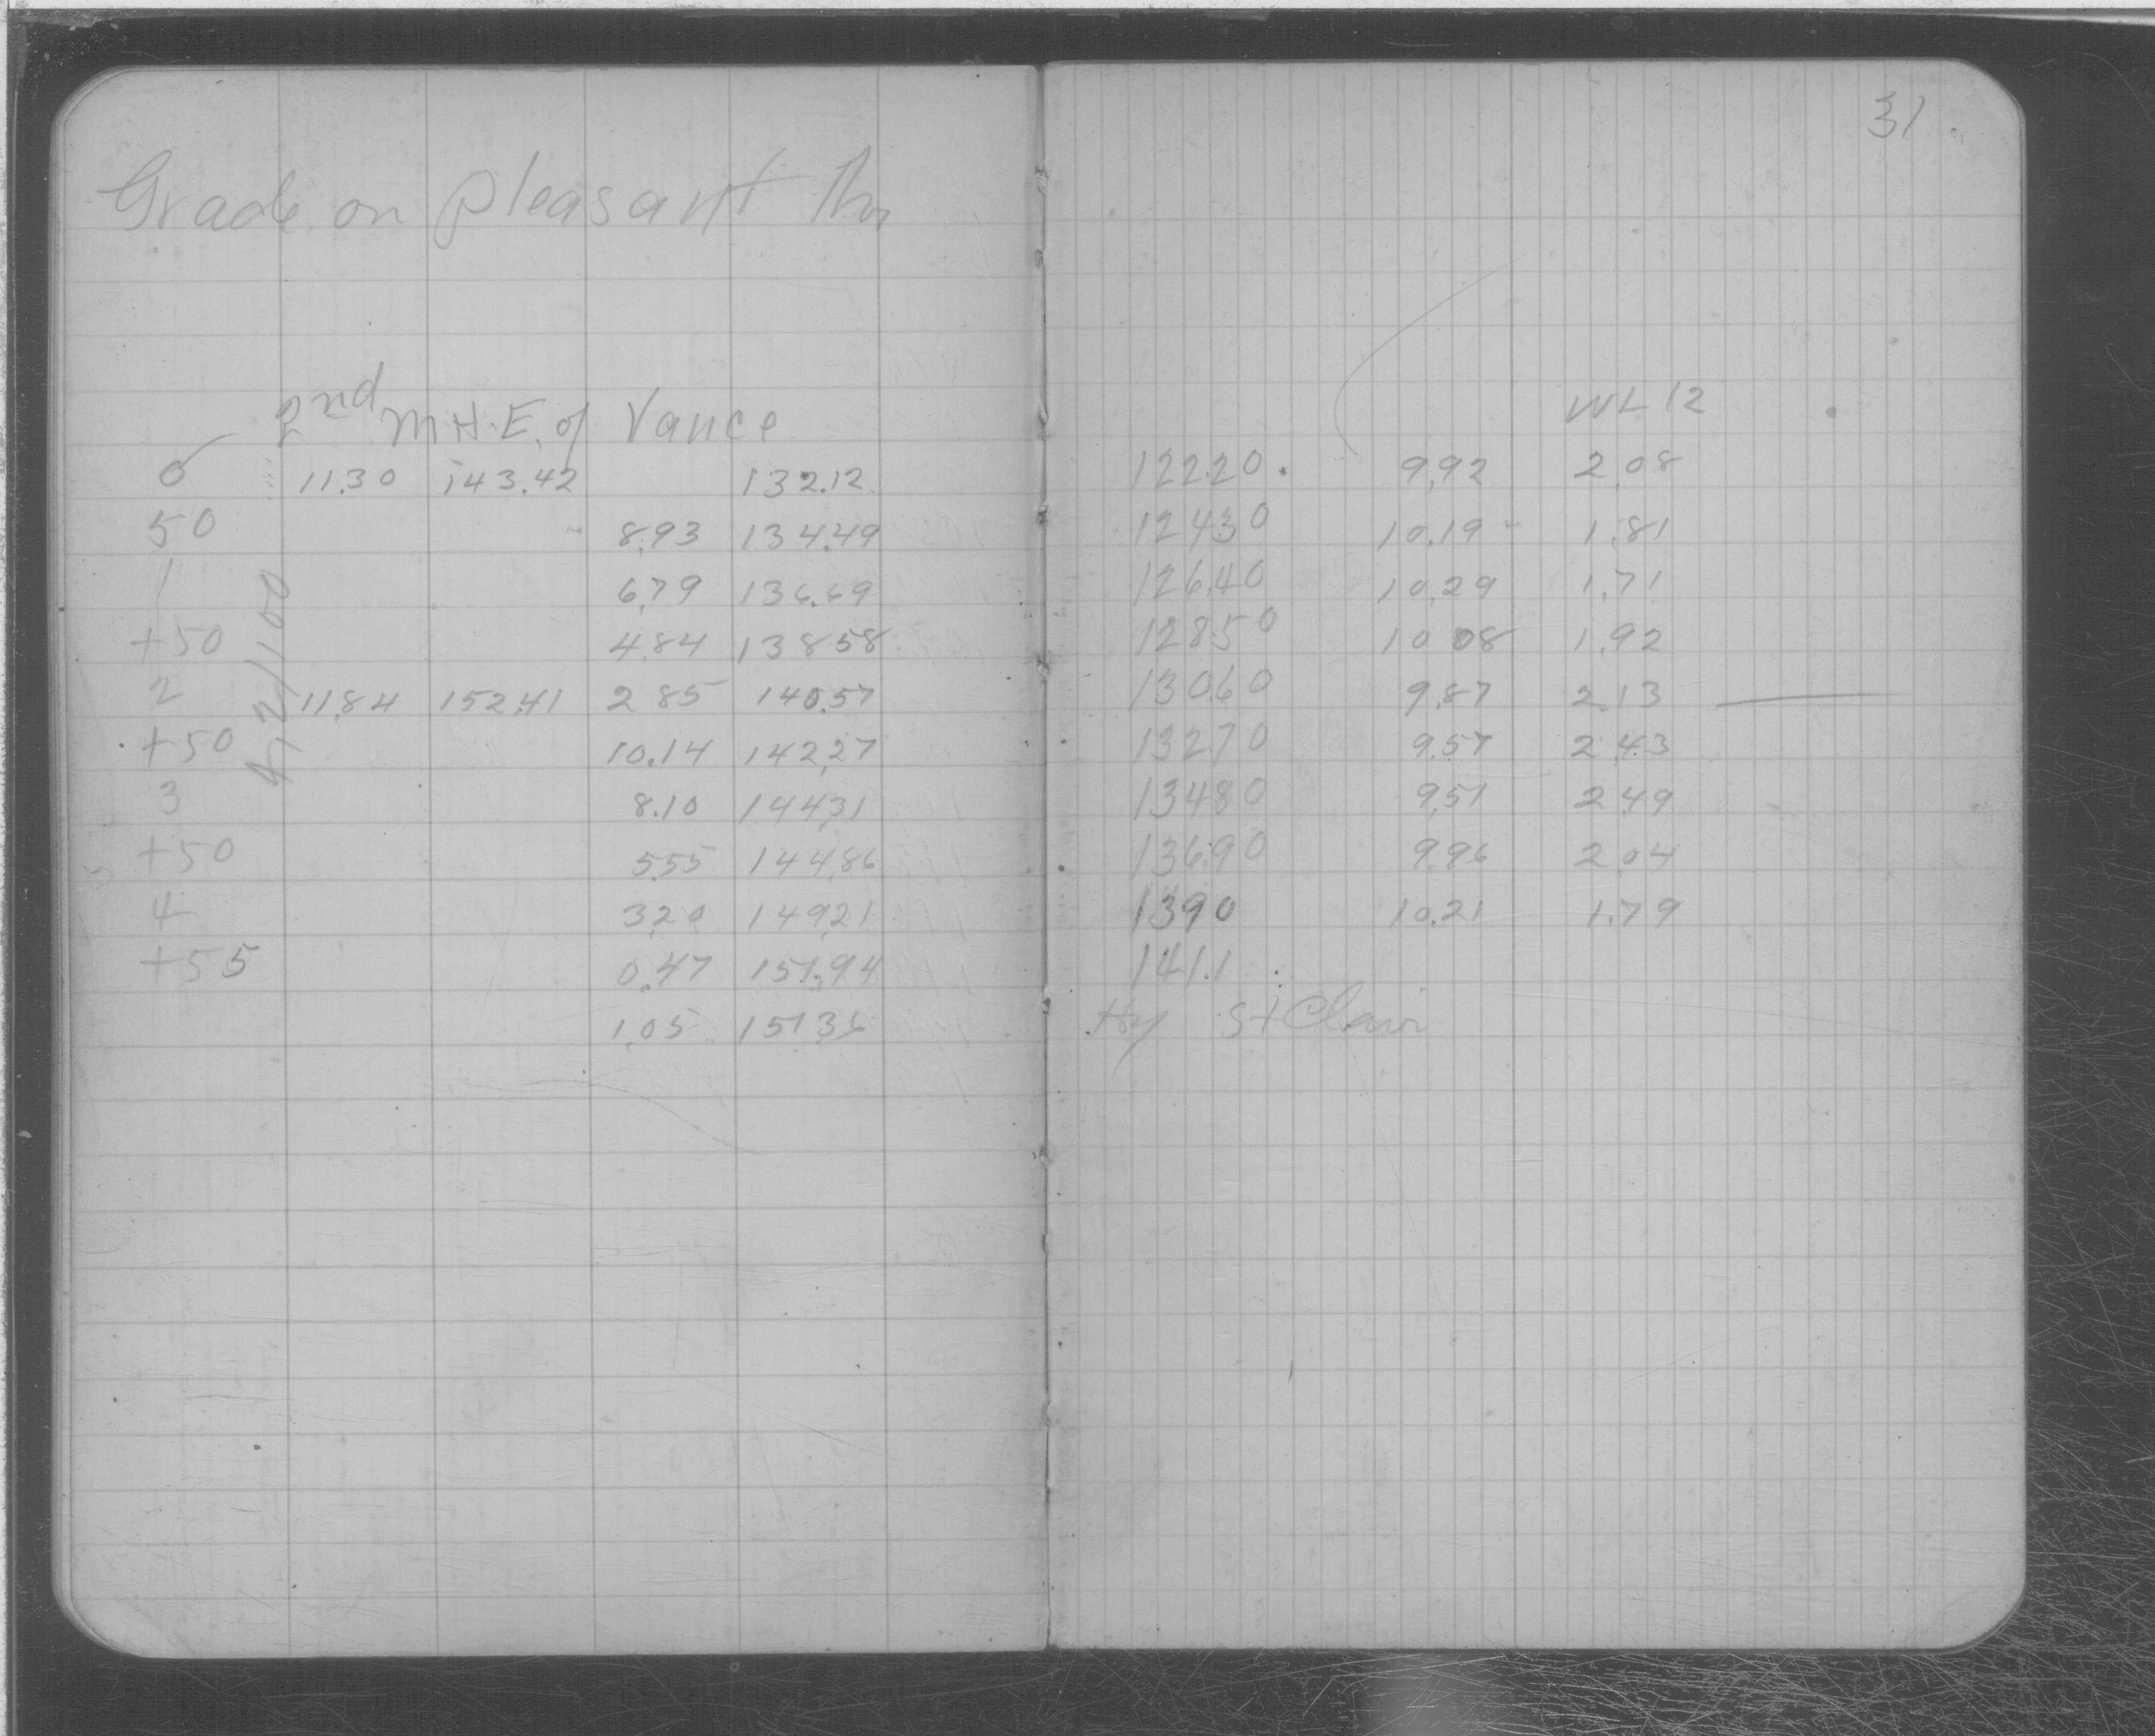 31
Grade on pleasant Thr
2nd M.H.E. of Vance
WL 12
0 11.30 143.42 132.12 122.20 9.92 2.08
50 8.93 134.49 124.30 10.19 1.81
1 6.79 136.69 126.40 10.29 1.71
+50 4.84 138.58 128.50 10.08 1.92
2 11.84 152.41 2.85 140.57 130.60 9.87 2.13
+50 10.14 142.27 132.70 9.57 2.43
3 8.10 144.31 134.80 9.51 2.49
+50 5.55 144.86 136.90 9.96 2.04
4 3.20 149.21 1390 10.21 1.79
+55 0.47 151.94 141.1
1.05 151.36 Hy St Clair
4.2/100